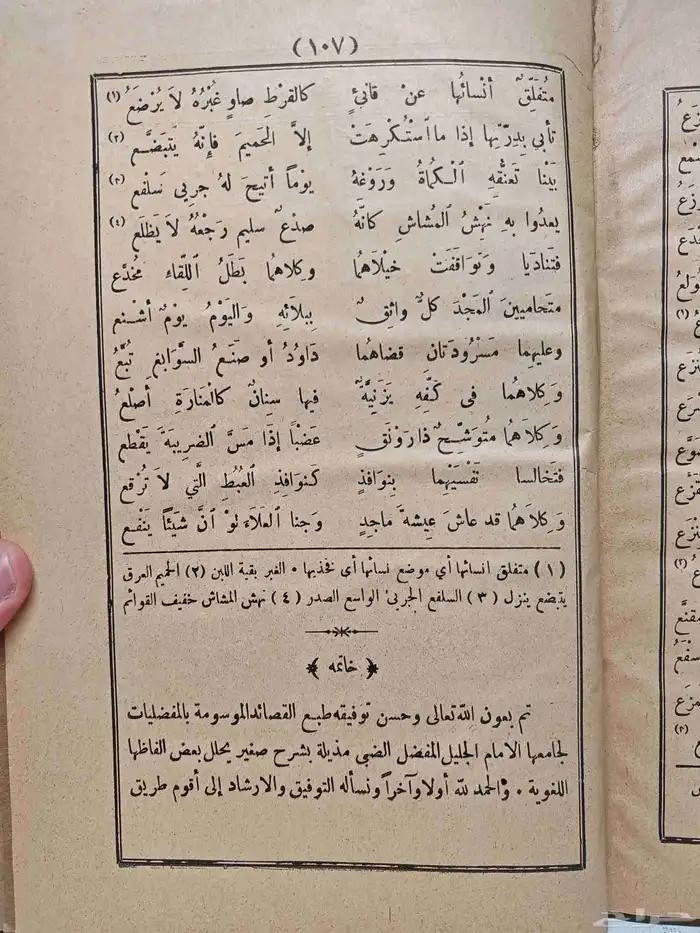 (١٠٧)
مُتَفَلِّقٌ أَنْسائُها عنْ قانِئٍ كالقرْطِ صاوٍ غُبْرُهُ لاَ يُرْضَعُ (١)
تأبى بِدِرَّتِها إذا ما اسْتُكْرِهَتْ إلاَّ الحَمِيمَ فإنَّهُ يَتَبَضَّعُ (٢)
بَيْنا تَعنُّقُهِ الْكُماةُ وَرَوْغهُ يوْماً أُتيحَ لهُ جرِيى سَلْفع (٣)
يعدُوا بهِ نَهْشُ المُشاشِ كانَّهُ صدْعٌ سليم رَجْعُهُ لاَ يَظْلَع (٤)
فتَنادَيا وَتَوَاقَفَتْ خيْلاَهُما وكِلاهُما بَطَلُ اللِّقاءِ مُخَدَّع
متَحاميينِ المَجْدَ كلٌّ واثِقٌ بِبلاَئِهِ والْيَوْمُ يوْمٌ أشْنع
وعليهِما مَسْرُودَتانِ قضاهُما دَاوُدُ أو صَنَعُ السَّوَابغِ تُبَّعُ
وَكِلاهُما في كَفِّهِ يَزَنِيَّةٌ فيها سِنانٌ كالْمَنارَةِ أصْلعُ
وَكِلاَهُما مُتوَشِّحٌ ذا رَوْنَقٍ عَضْباً إذَا مَسَّ الضَرِيبَةَ يَقْطع
فتَخالسا نَفْسَيْهما بِنوافِذٍ كَنوَافِذِ العُبُطِ الَّتي لاَ تُرْقع
وَكِلاَهُما قد عاشَ عِيشةَ ماجِدٍ وَجنا العَلاَءَ لوْ انَّ شَيْئاً يَنْفع
(١) متفلق انسائها أي موضع نسائها أي فخذيها • الغبر بقية اللبن (٢) الحميم العرق
يتبضع ينزل (٣) السلفع الجرىء الواسع الصدر (٤) نهش المشاش خفيف القوائم
﴿ خاتمه ﴾
تم بعون الله تعالى وحسن توفيقه طبع القصائد الموسومة بالمفضليات
لجامعها الامام الجليل المفضل الضبي مذيلة بشرح صغير يحلل بعض الفاظها
اللغوية • والحمد لله أولا وآخراً ونسأله التوفيق والارشاد إلى أقوم طريق